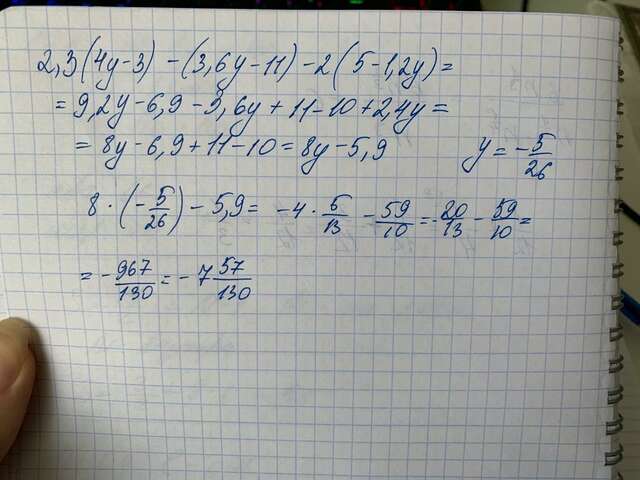 2,3(4y-3) -(3,6y-11) -2(5-1,2y)=
= 9,2y - 6,9 - 3,6y + 11 - 10 + 2,4y =
= 8y - 6,9 + 11 - 10 = 8y - 5,9 y = -5/26
8 · (-5/26) - 5,9 = -4 · 5/13 - 59/10 = -20/13 - 59/10 =
= -967/130 = -7 57/130